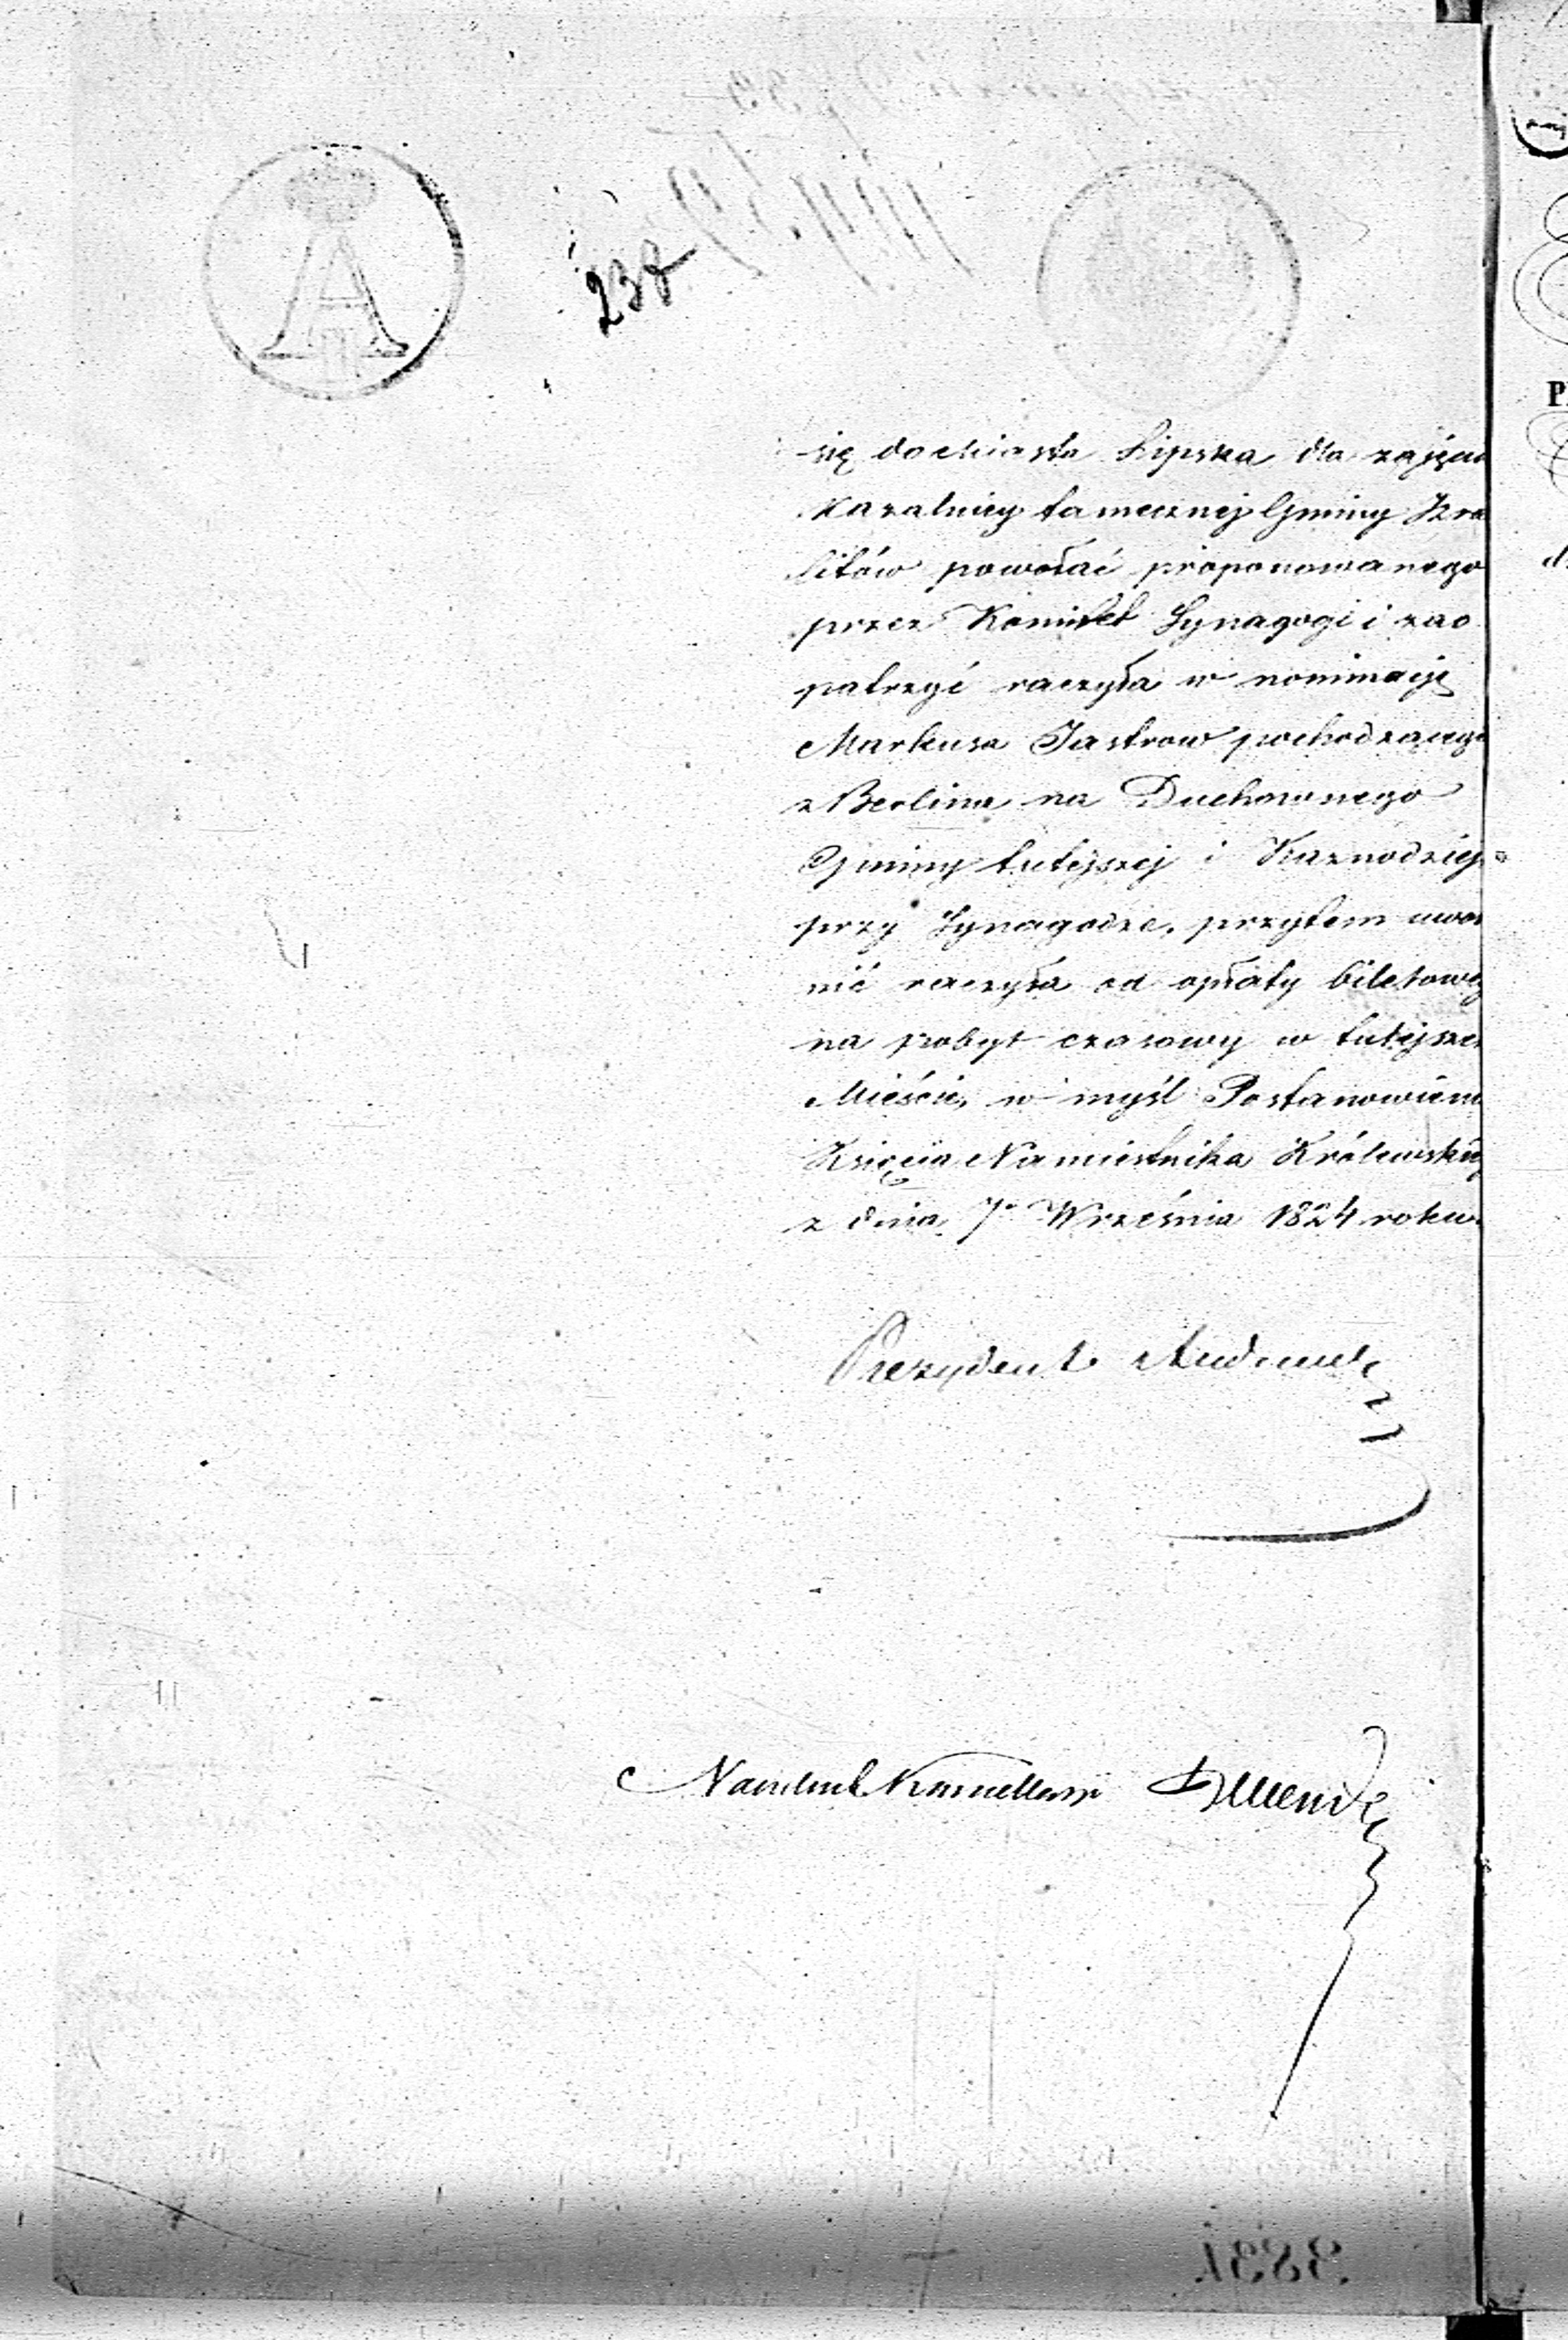 A
II
237
się do Miasta Lipska dla zajęcia
Kazalnicy tamecznej Gminy Izra
elitów powołać proponowanego
przez Komitet Synagogi i zao
patrzyć raczyła w nominacyę
Markusa Jastrow pochodzącego
z Berlina na Duchownego
Gminy tutejszej i Kaznodzieję
przy Synagodze, przytem uwol
nić raczyła od opłaty biletowej
na pobyt czasowy w tutejszem
Mieście, w myśl Postanowienia
Księcia Namiestnika Królewskiego
z dnia 7° Września 1824 roku.
Prezydent
Naczelnik Kancellaryi
3831
P